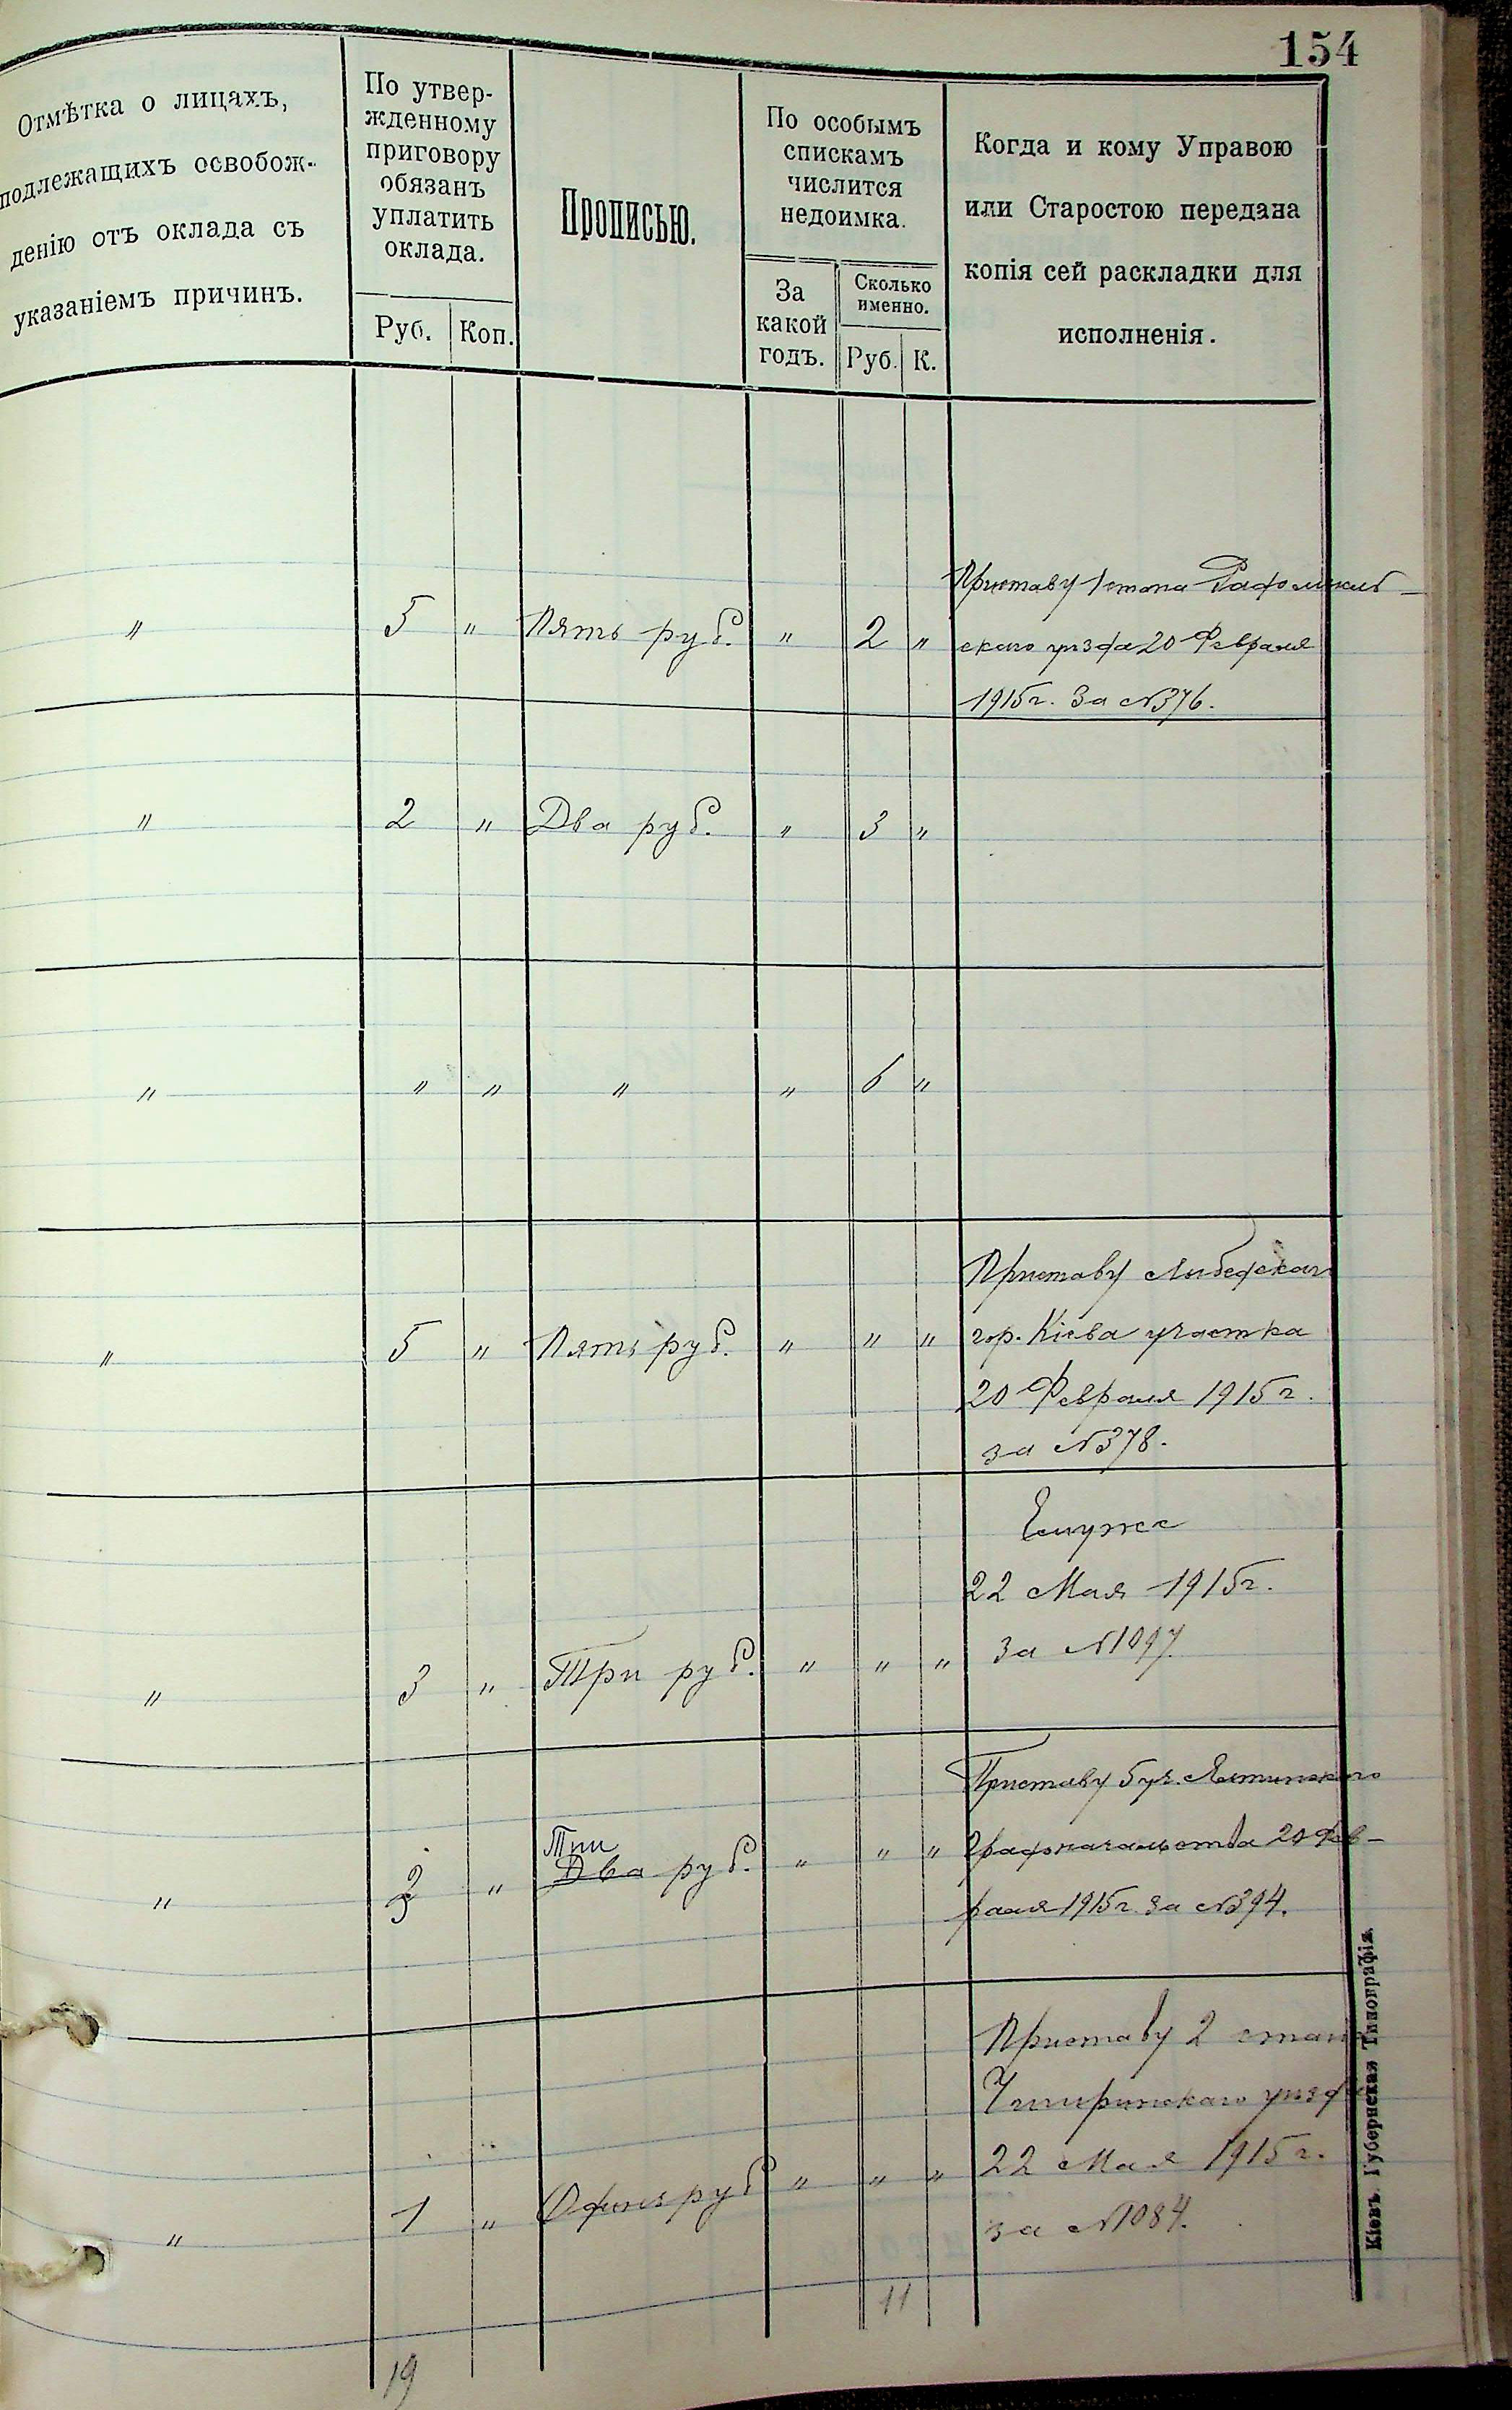 154
Отмѣтка о лицахъ,
подлежащихъ освобож-
денію отъ оклада съ
указаніемъ причинъ.
По утвер-
жденному
приговору
обязанъ
уплатить
оклада.
Руб. Коп.
Прописью.
По особымъ
спискамъ
числится
недоимка.
За
какой
годъ.
Сколько
именно.
Руб. К.
Когда и кому Управою
или Старостою передана
копія сей раскладки для
исполненія.
Приставу 1 стана Радомысль-
" 5 " Пять руб. " 2 " скаго уѣзда 20 Февраля
1915 г. За №376.
" 2 " Два руб. " 3 "
" " " " " 6 "
Приставу Лыбедскаго
" 5 " Пять руб. " " " гор. Кіева участка
20 Февраля 1915 г.
за №378.
Ему же
22 Мая 1915 г.
" 3 " Три руб. " " " за №1097.
Приставу 5 уч. Ялтинскаго
Три
" 3 " Два руб. " " " Градоначальства 20 Фев-
раля 1915 г. за №394.
Приставу 2 стана
Чигиринскаго уѣзд
" 1 " Одинъ руб " " " 22 Мая 1915 г.
за №1084.
11
19
Кіевъ. Губернская Типографія.